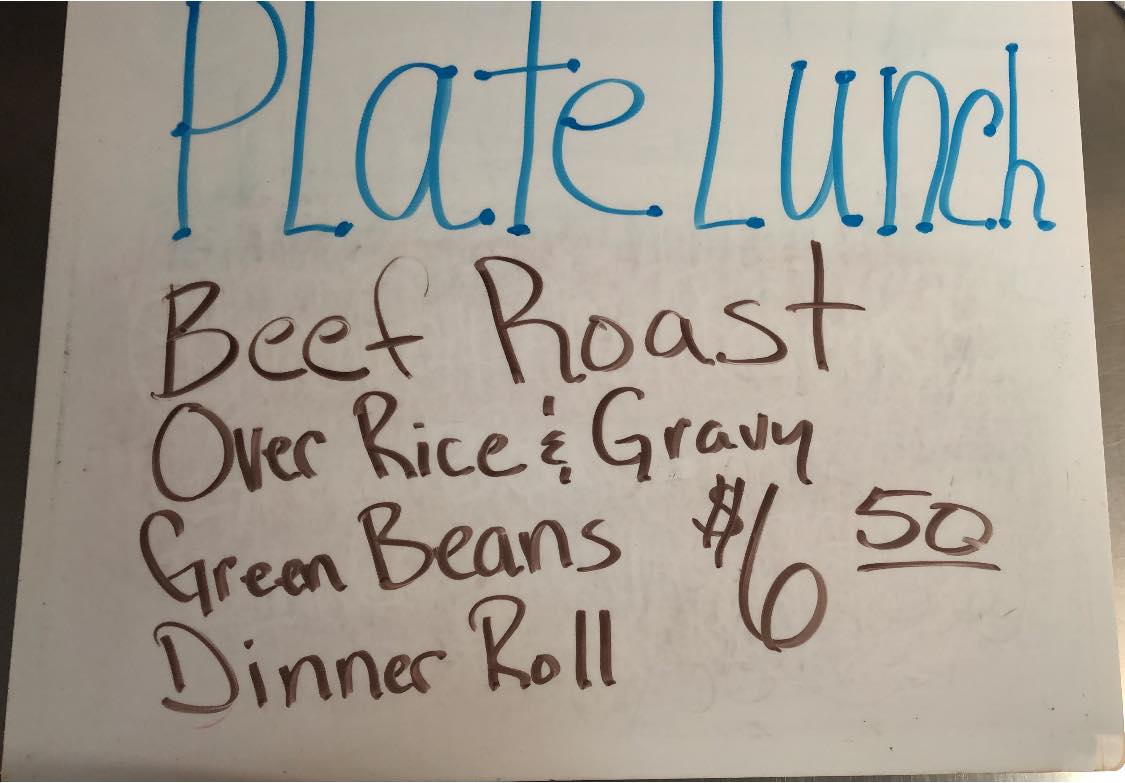 PLate Lunch
Beef Roast
Over Rice & Gravy
Green Beans $6 50
Dinner Roll